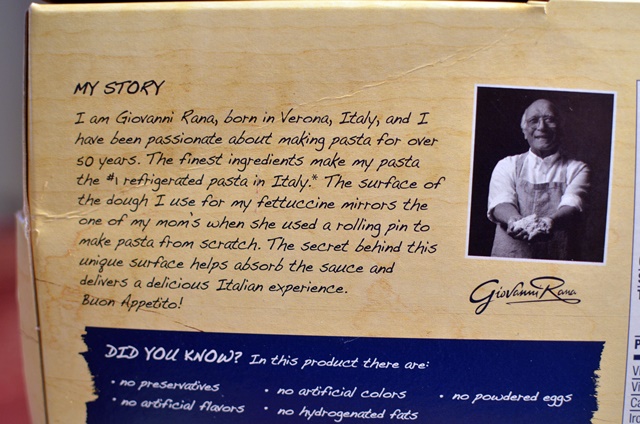 MY STORY
I am Giovanni Rana, born in Verona, Italy, and I
have been passionate about making pasta for over
50 years. The finest ingredients make my pasta
the #1 refrigerated pasta in Italy.* The surface of
the dough I use for my fettuccine mirrors the
one of my mom's when she used a rolling pin to
make pasta from scratch. The secret behind this
unique surface helps absorb the sauce and
delivers a delicious Italian experience.
Buon Appetito!
Giovanni Rana
DID YOU KNOW? In this product there are:
• no preservatives
• no artificial flavors
• no artificial colors
• no hydrogenated fats
• no powdered eggs